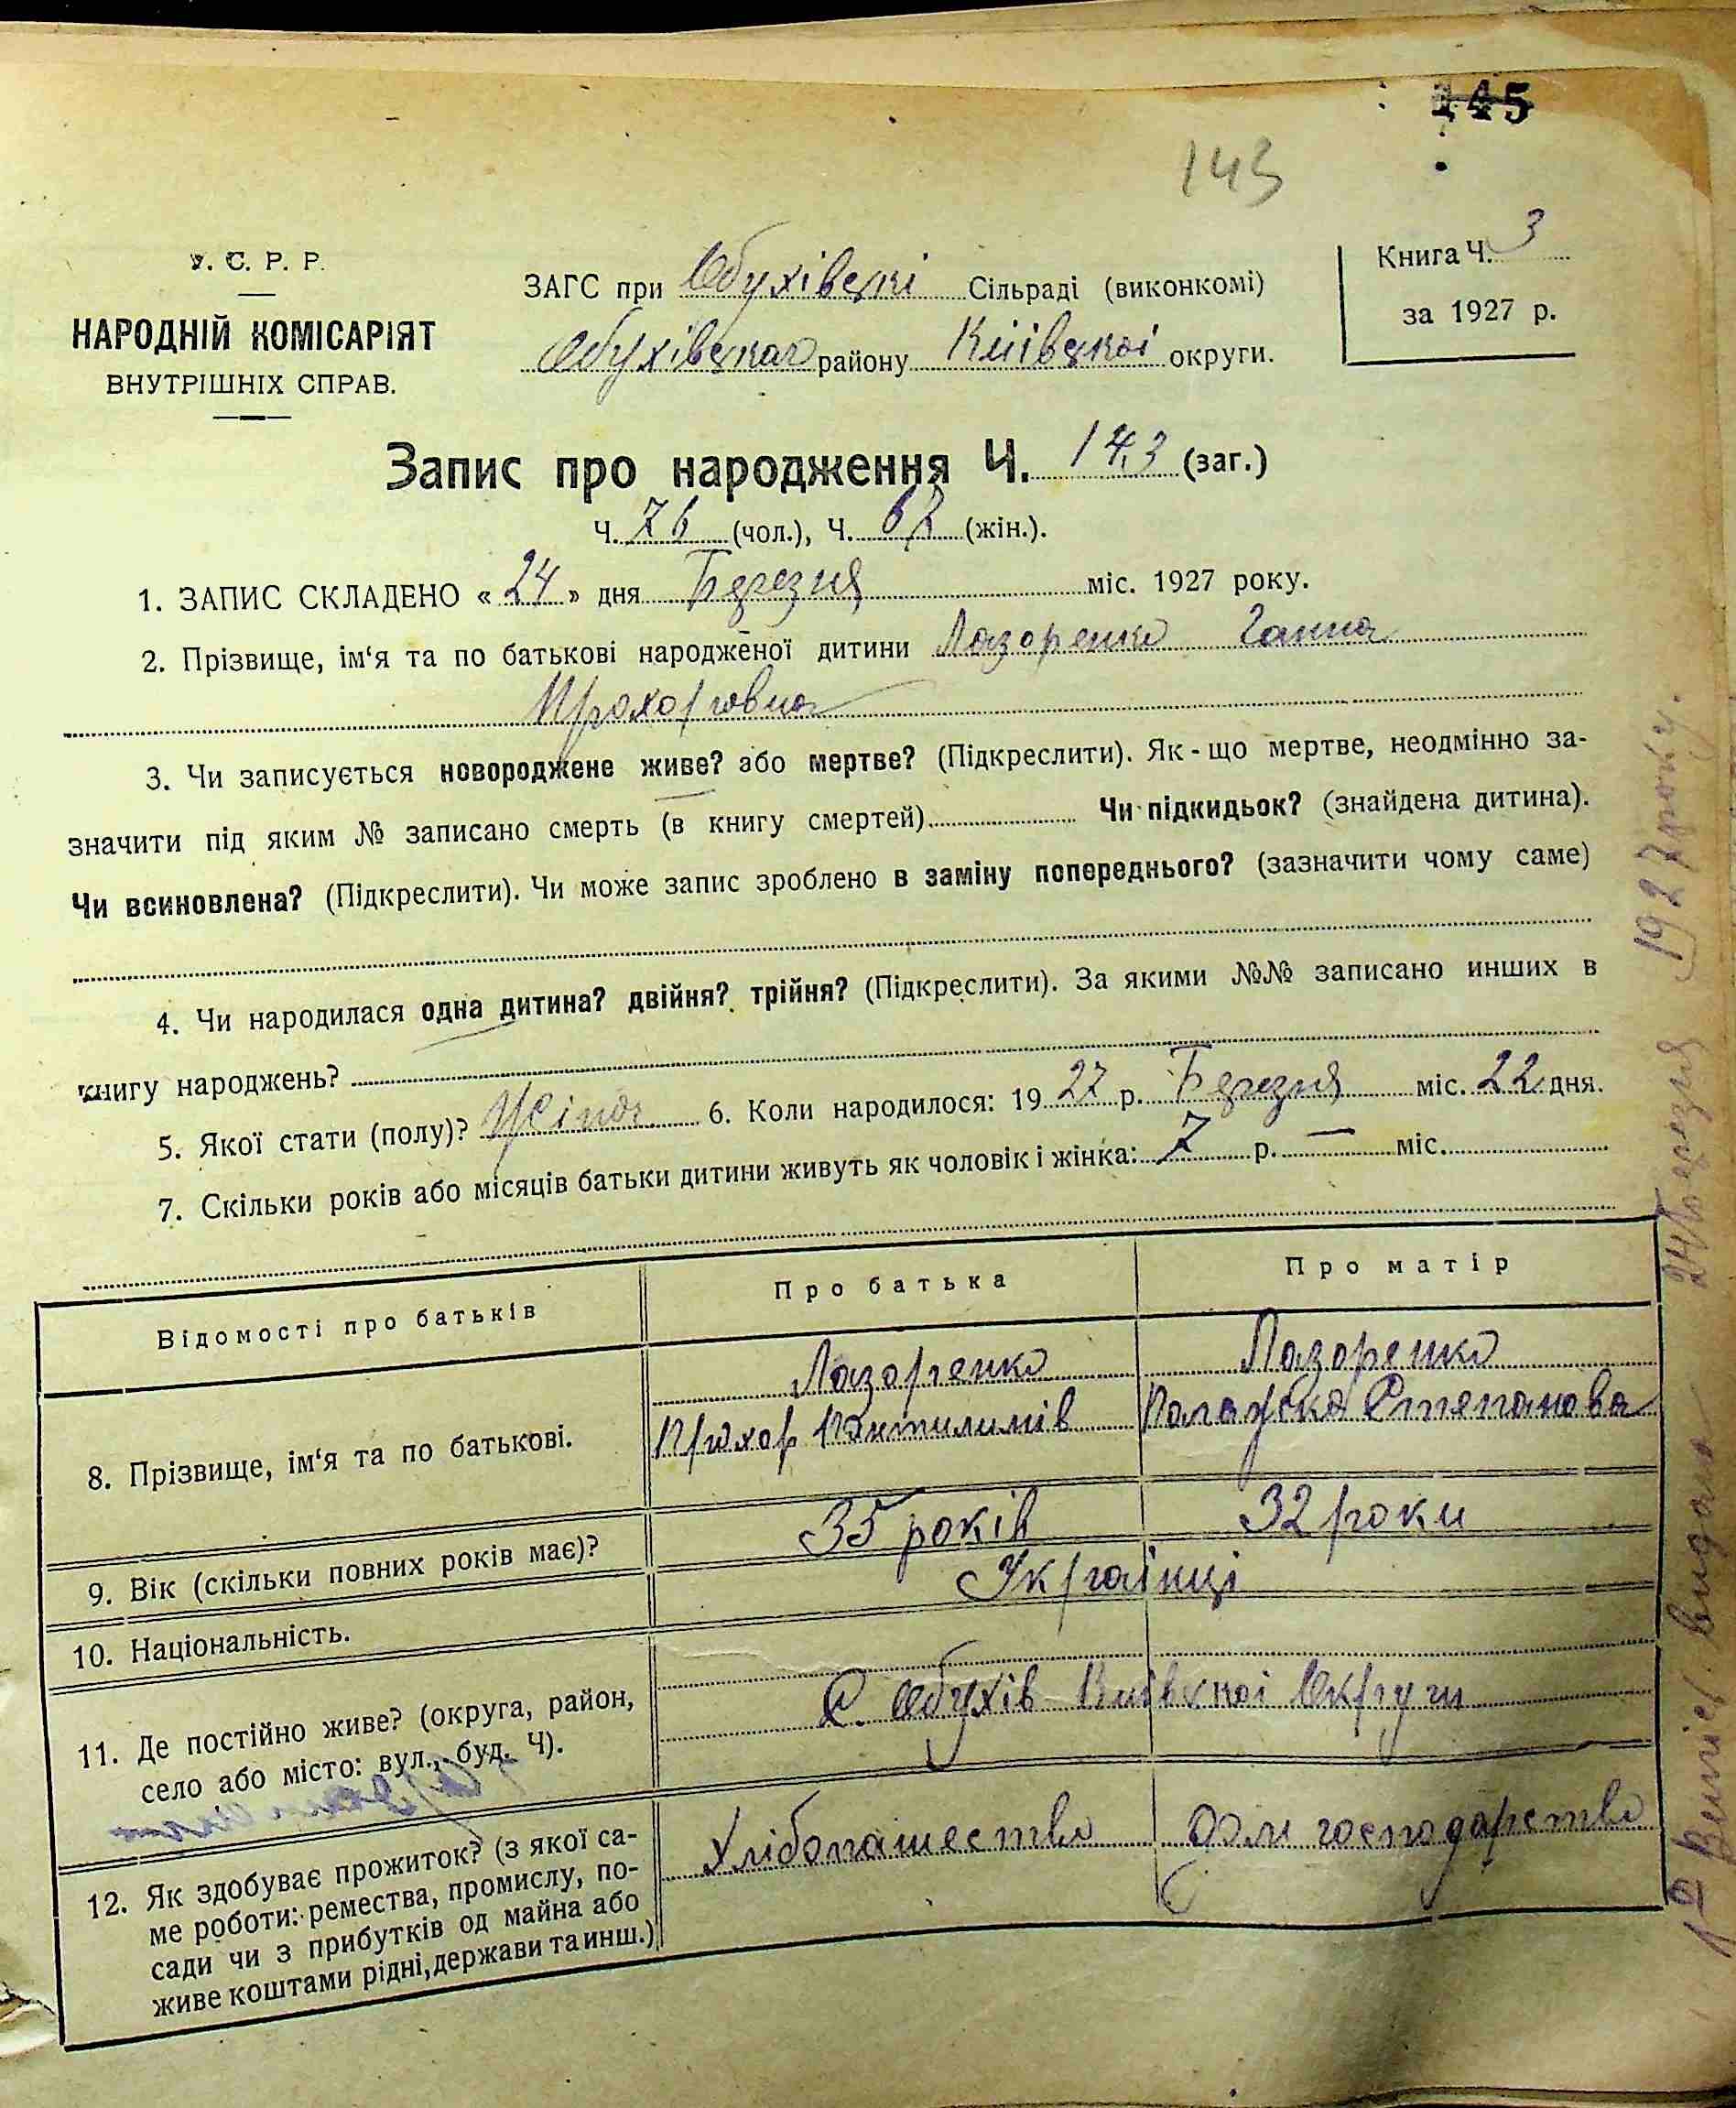 145
143
У. С. Р. Р.
НАРОДНІЙ КОМІСАРІЯТ
ВНУТРІШНІХ СПРАВ.
ЗАГС при Обухівські Сільраді (виконкомі)
Обухівског району Київської округи.
Книга Ч. 3
за 1927 р.
Запис про народження Ч. 143 (заг.)
Ч. 76 (чол.), Ч. 67 (жін.).
1. ЗАПИС СКЛАДЕНО « 24 » дня Березня міс. 1927 року.
2. Прізвище, ім‘я та по батькові народженої дитини Лазоренко Ганна
Прохоровна
3. Чи записується новороджене живе? або мертве? (Підкреслити). Як-що мертве, неодмінно за-
значити під яким № записано смерть (в книгу смертей) Чи підкидьок? (знайдена дитина).
Чи всиновлена? (Підкреслити). Чи може запис зроблено в заміну попереднього? (зазначити чому саме)
4. Чи народилася одна дитина? двійня? трійня? (Підкреслити). За якими №№ записано инших в
книгу народжень?
5. Якої стати (полу)? Жіноч. 6. Коли народилося: 1927 р. Березня міс. 22 дня.
7. Скільки років або місяців батьки дитини живуть як чоловік і жінка: 7 р. — міс.
Відомості про батьків Про батька Про матір
8. Прізвище, ім‘я та по батькові.
Лазоренко
Прохор Пантилимів
Лазоренко
Палажка Степанова
9. Вік (скільки повних років має)? 35 років 32 роки
10. Національність. Українці
11. Де постійно живе? (округа, район,
село або місто: вул., буд. Ч).
С. Обухів Київської Округи
12. Як здобуває прожиток? (з якої са-
ме роботи: ремества, промислу, по-
сади чи з прибутків од майна або
живе коштами рідні, держави та инш.)
Хлібопашество
дом господарство
видано 24 Березня 1927 року.